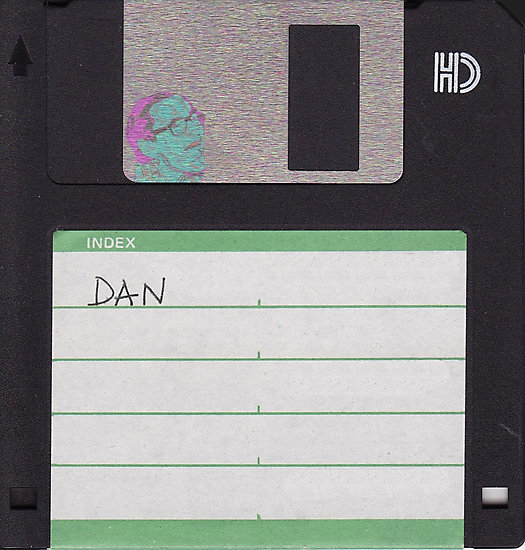 HD
INDEX
DAN